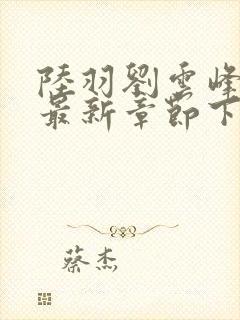 陸羽劉雲峰
最新章節下
蔡杰